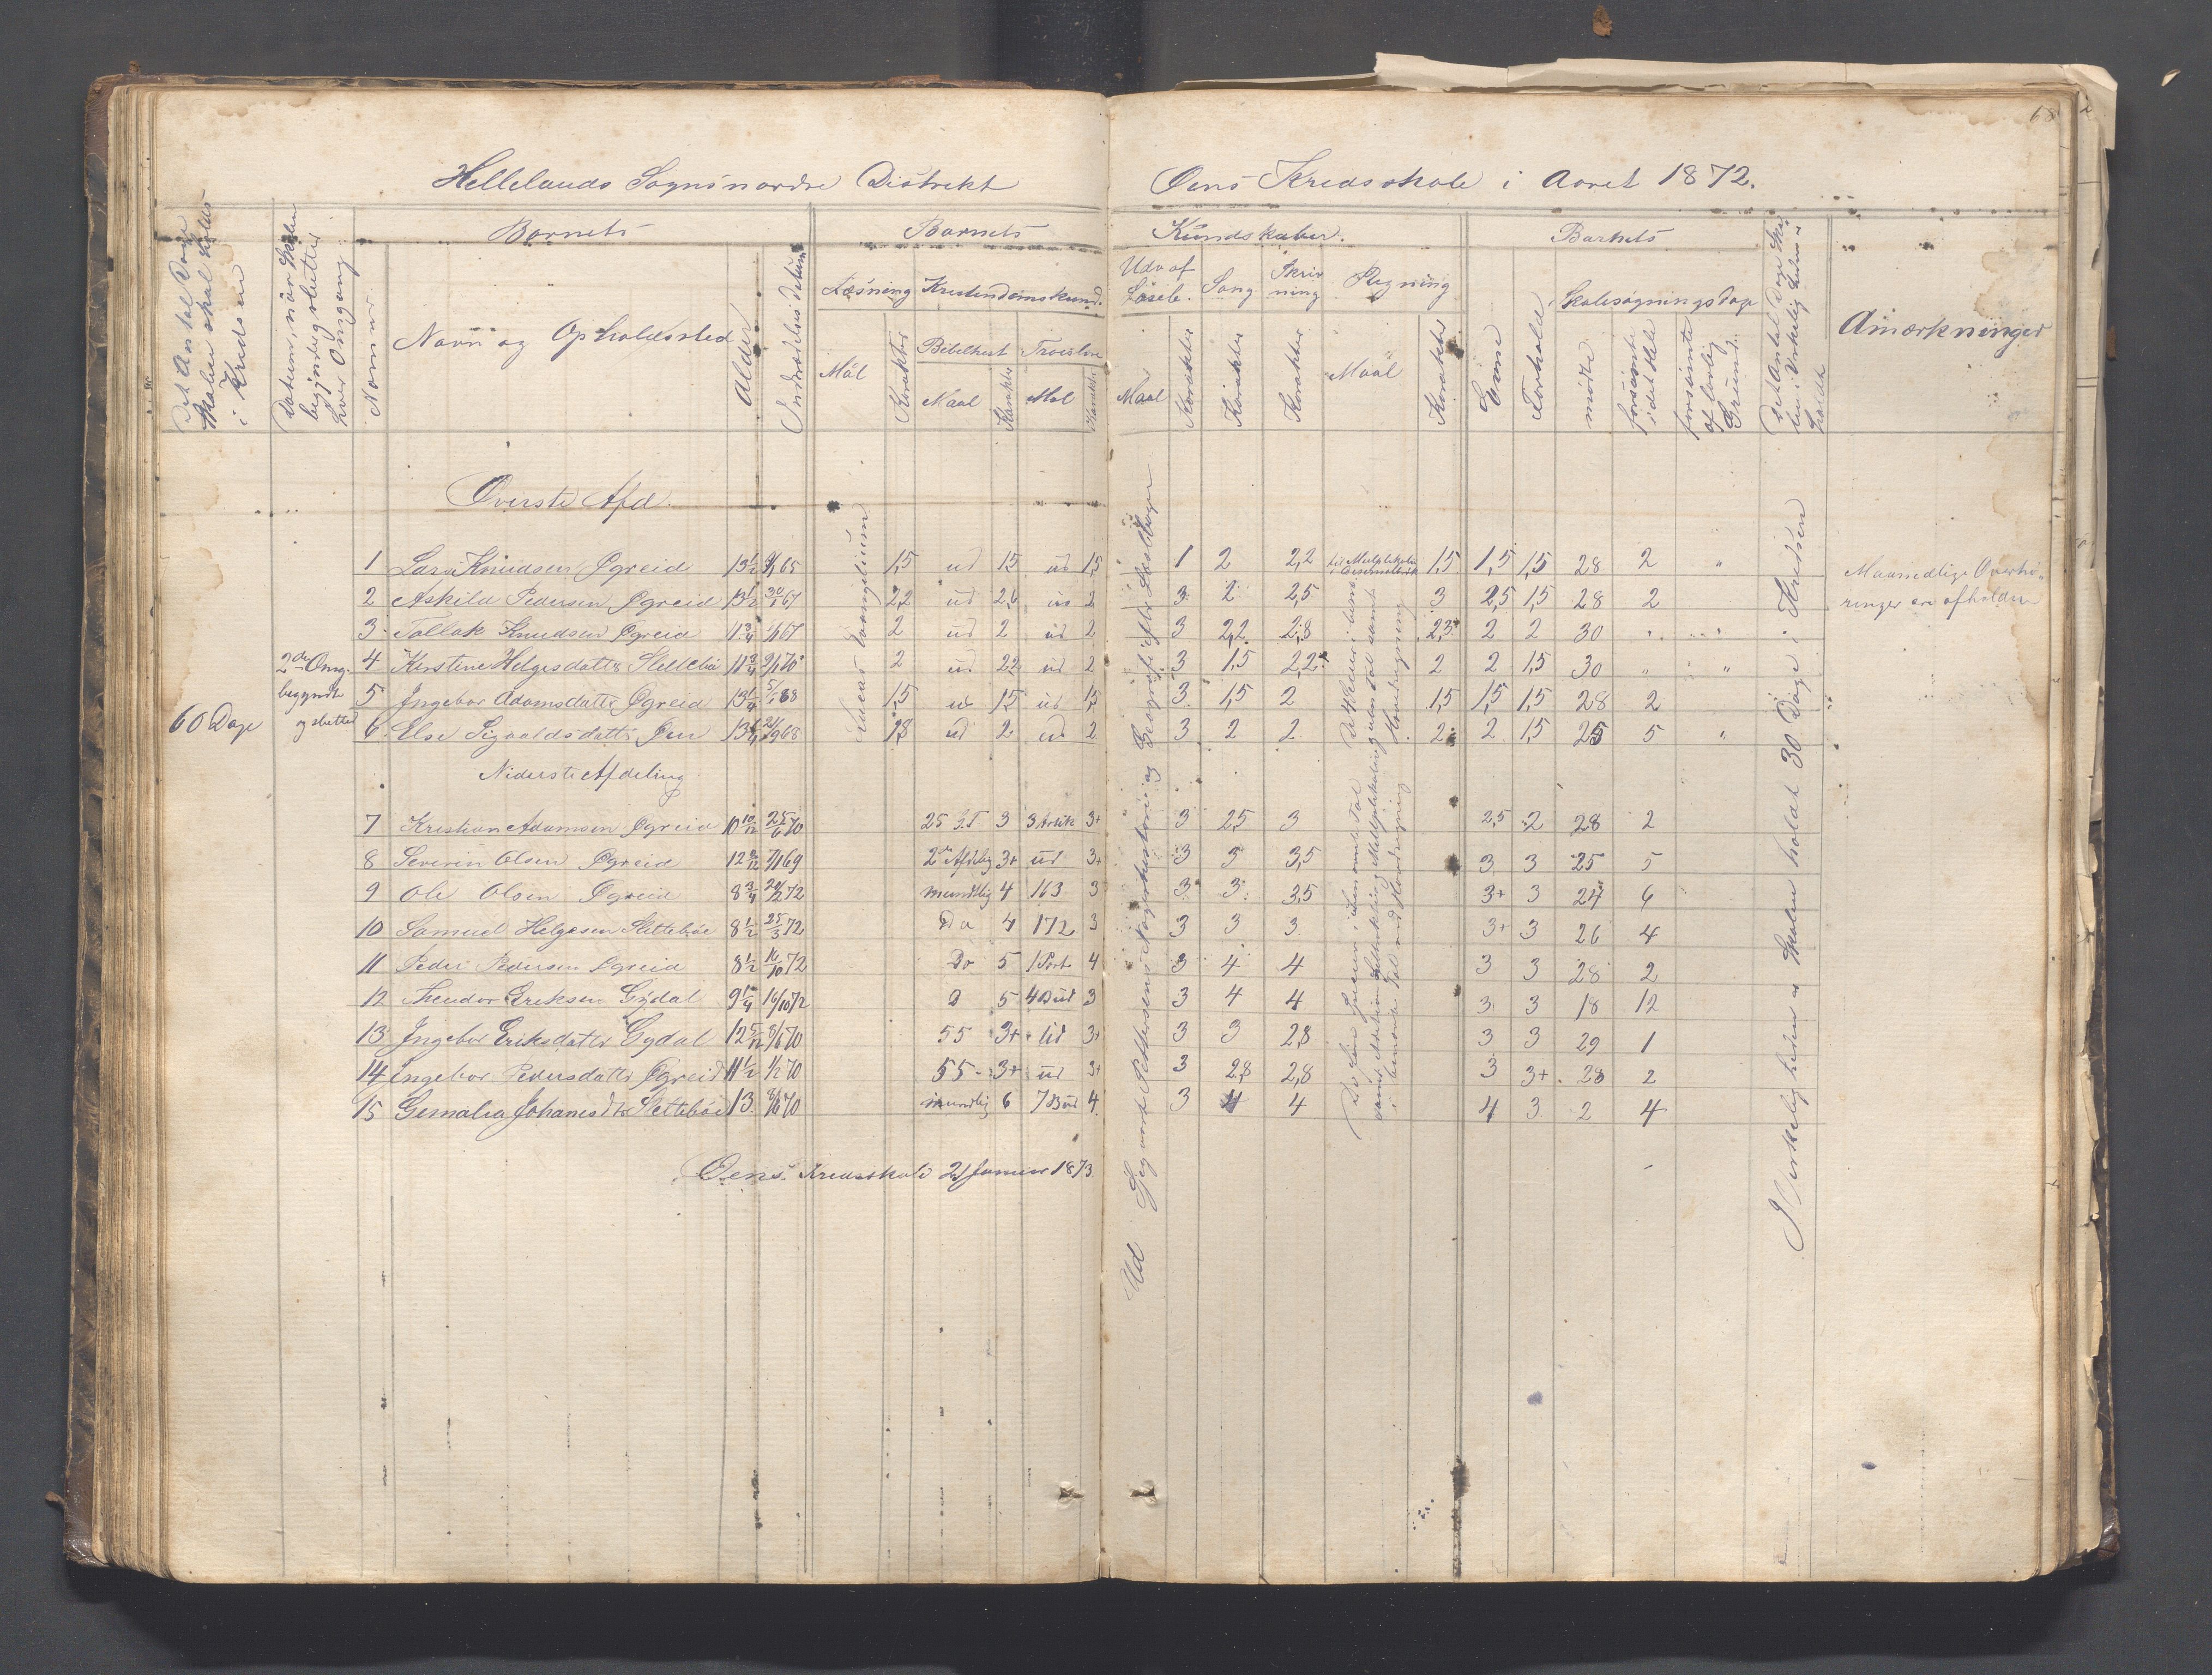 68
Hellelands Sogns nordre Distrikt
Øens Kredsskole i Aaret 1872.
Det Antal Dage Skolen skal holdes i Kredsen
Datum, naar Skolen begynder og slutter hver Omgang
Nommer
Barnets
Navn og Opholdssted
Alder
Indtrædelses datum
Barnets
Læsning
Kristendomskund.
Mål
Karakter
Bibelhist
Troeslære
Maal
Karakter
Mål
Karakter
Kundskaber.
Udv af Læseb.
Sang
Skrivning
Regning
Maal
Karakter
Karakter
Karakter
Maal
Karakter
Barnets
Evne
Forhold
Skolesøgningsdage
mødte
forsømte i det Hele
forsømte af lovlig Grund
Anmærkninger
Øverste Afd.
1 Lars Knudsen Øgreid 13 1/2 65 1,5 ud 1,5 ud 1,5 1 2 2,2 1,5 1,5 1,5 28 2 "
2 Askild Pedersen Øgreid 13 1/2 67 2,2 ud 2,6 ud 2 3 2 2,5 3 2,5 1,5 28 2
3 Tollak Knudsen Øgreid 67 2 ud 2 ud 2 3 2,2 2,8 2,3 2 2 30 " "
4 Kirstine Helgesdatter Slettebø 11 3/4 70 2 ud 2,2 ud 2 3 1,5 2,2 2 2 1,5 30 " "
5 Ingebor Adamsdatter Øgreid 13 1/4 68 1,5 ud 1,5 ud 1,5 3 1,5 2 1,5 1,5 1,5 28 2
6 Else Sigvaldsdatter Øen 13 1/4 68 1,8 ud 2 ud 2 3 2 2 2 2 1,5 25 5 "
60 Dage
2den Omg. begyndt og sluttet
Lucas Evangelium
Maanedlige Overhøringer ere afholdte
Niderste Afdeling
7 Kristian Adamsen Øgreid 10 10/12 25/6 70 25 G.T 3 3 Artik 3+ 3 2,5 3 2,5 2 28 2
8 Severin Olsen Øgreid 12 69 2den Afdelig 3+ ud 3+ 3 3 3,5 3 3 25 5
9 Ole Olsen Øgreid 8 3/4 72 mundtlig 4 163 3 3 3 3,5 3+ 3 24 6
10 Samuel Helgesen Slettebøe 8 1/2 25/3 72 Do 4 172 3 3 3 3 3+ 3 26 4
11 Peder Pedersen Øgreid 8 1/2 72 Do 5 1 Part 4 3 4 4 3 3 28 2
12 Theodor Eriksen Gydal 9 1/4 16/10 72 D 5 4 Bud 3 3 4 4 3 3 18 12
13 Ingebor Eriksdatter Gydal 12 8/6 70 55 3+ ud 3+ 3 3 2,8 3 3 29 1
14 Ingebor Pedersdatter Øgreid 11 1/2 70 55 - 3+ ud 3+ 3 2,8 2,8 3 3+ 28 2
15 Gemalia Johanesdtr Slettebøe 13 8/6 70 mundtlig 6 7 Bud 4 3 4 4 4 3 2 4
Ud Sigvard Pettersens Naturhistorie og Geografi efter Læsebogen
I Verkeligheden er Skolen holdt 30 Dage i Kredsen
Øens Kredsskole 21 Januar 1873